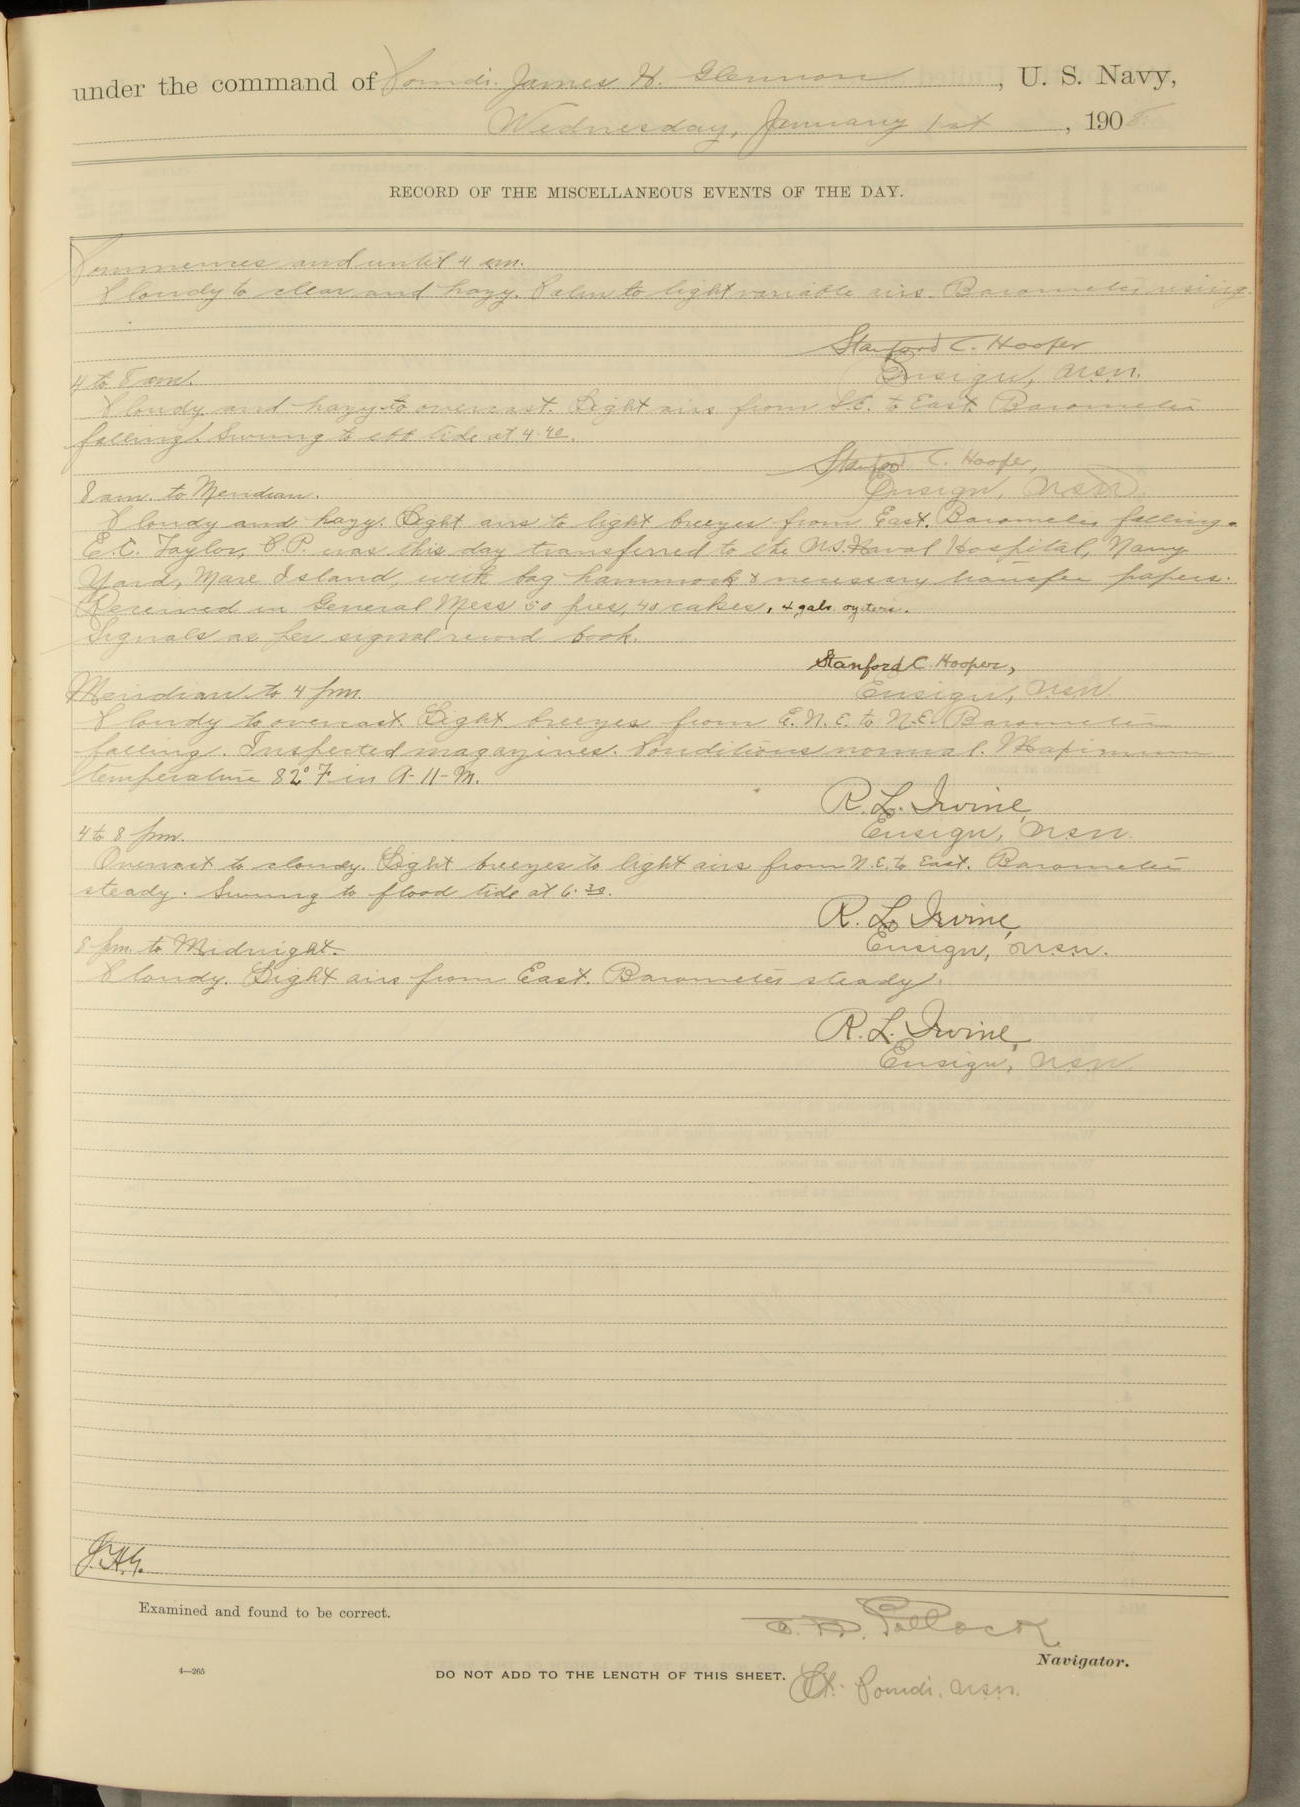 under the command of Comdr. James H. Glennon, U. S. Navy,
Wednesday, January 1st, 1908.
RECORD OF THE MISCELLANEOUS EVENTS OF THE DAY.
Commences and until 4 am.
Cloudy to clear and hazy. Calm to light variable airs. Barometer rising.
Stanford C. Hooper
Ensign, U.S.N.
4 to 8 am.
Cloudy and hazy to overcast. Light airs from S.E. to East. Barometer
falling. Swung to ebb tide at 4.40.
Stanford C. Hooper,
Ensign, U.S.N.
8 am. to Meridian.
Cloudy and hazy. Light airs to light breezes from East. Barometer falling.
E.C. Taylor, C.P. was this day transferred to the U.S. Naval Hospital, Navy
Yard, Mare Island, with bag hammock & necessary transfer papers.
Received in General Mess 50 pies, 40 cakes, 4 gals oysters.
Signals as per signal record book.
Stanford C. Hooper,
Ensign, U.S.N.
Meridian to 4 pm.
Cloudy to overcast. Light breezes from E.N.E. to N.E. Barometer
falling. Inspected magazines. Conditions normal. Maximum
temperature 82° F in A-11-M.
R. L. Irvine,
Ensign, U.S.N.
4 to 8 pm.
Overcast to cloudy. Light breezes to light airs from N.E. to East. Barometer
steady. Swung to flood tide at 6.30.
R. L. Irvine,
Ensign, U.S.N.
8 pm. to Midnight.
Cloudy. Light airs from East. Barometer steady.
R. L. Irvine,
Ensign, U.S.N.
J.H.G.
Examined and found to be correct.
Pollock
Navigator.
4—265
DO NOT ADD TO THE LENGTH OF THIS SHEET.
Lt. Comdr. U.S.N.